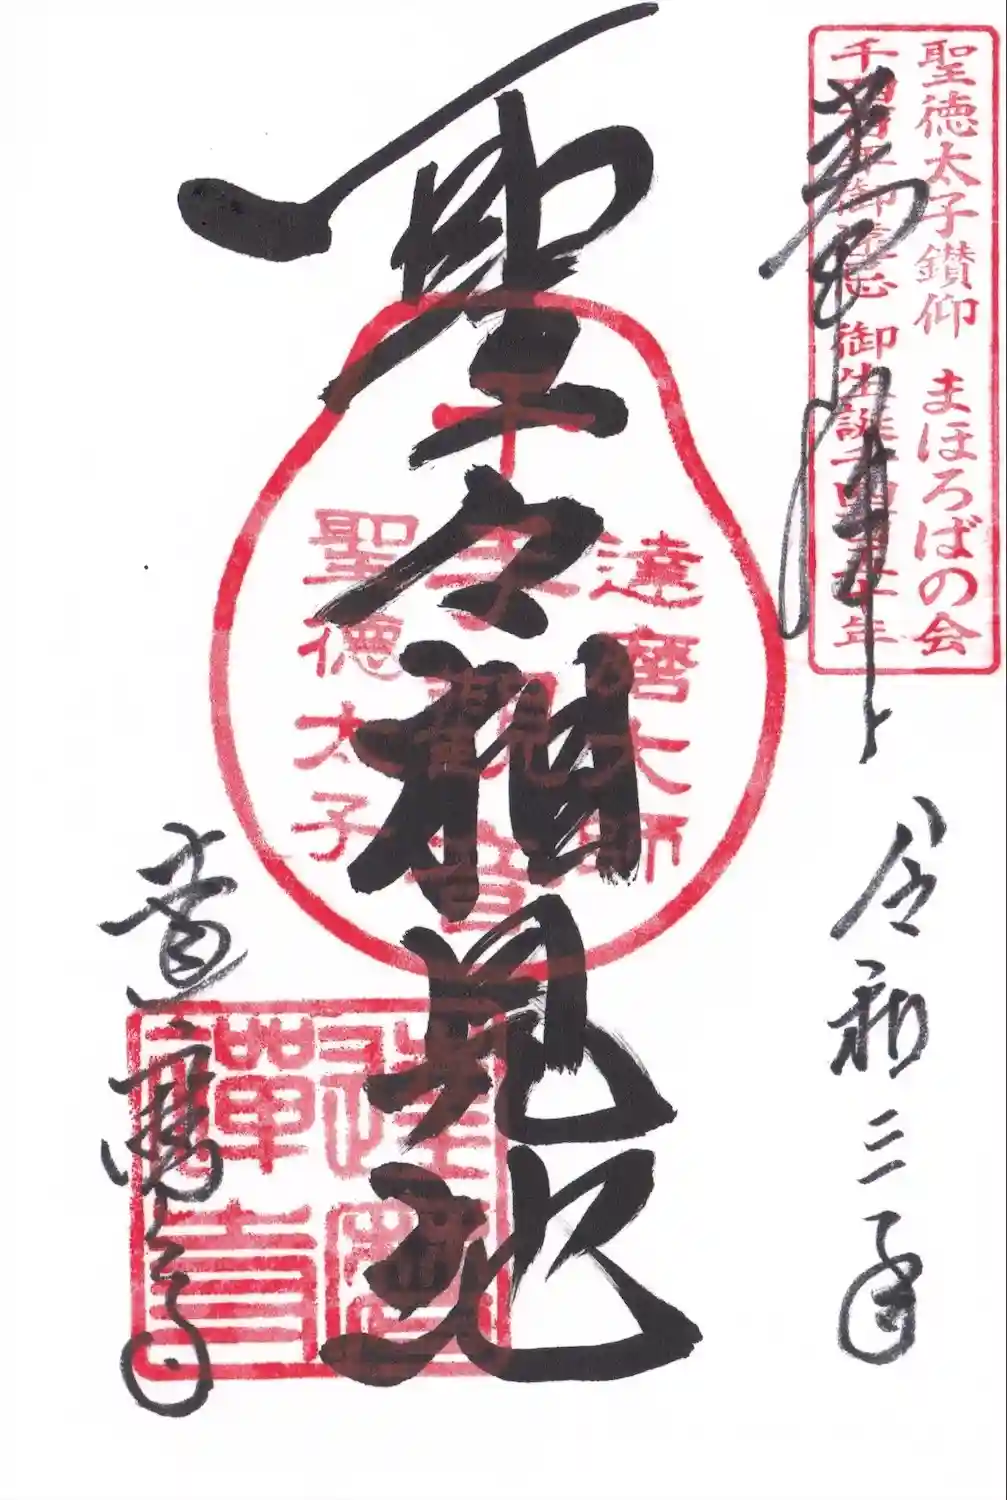 聖徳太子鑽仰 まほろばの会
千四百年御遠忌 御生誕千四百五十年
奉拝
令和三年
達磨大師
千手観音
聖徳太子
聖々相見地
達磨寺